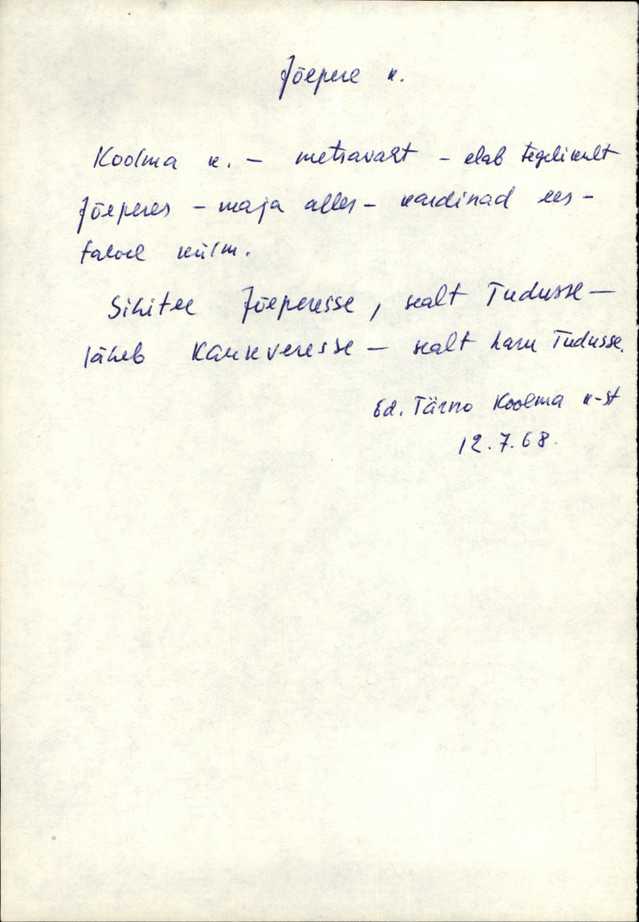 Jõepere k.
Koolma k. — metsavaht — elab tegelikult
Jõeperes — maja alles — kardinad ees —
talvel külm.
Sihitee Jõeperesse, sealt Tudusse —
läheb Kaukveresse — sealt haru Tudusse.
Ed. Tärno Koolma k-st
12.7.68.